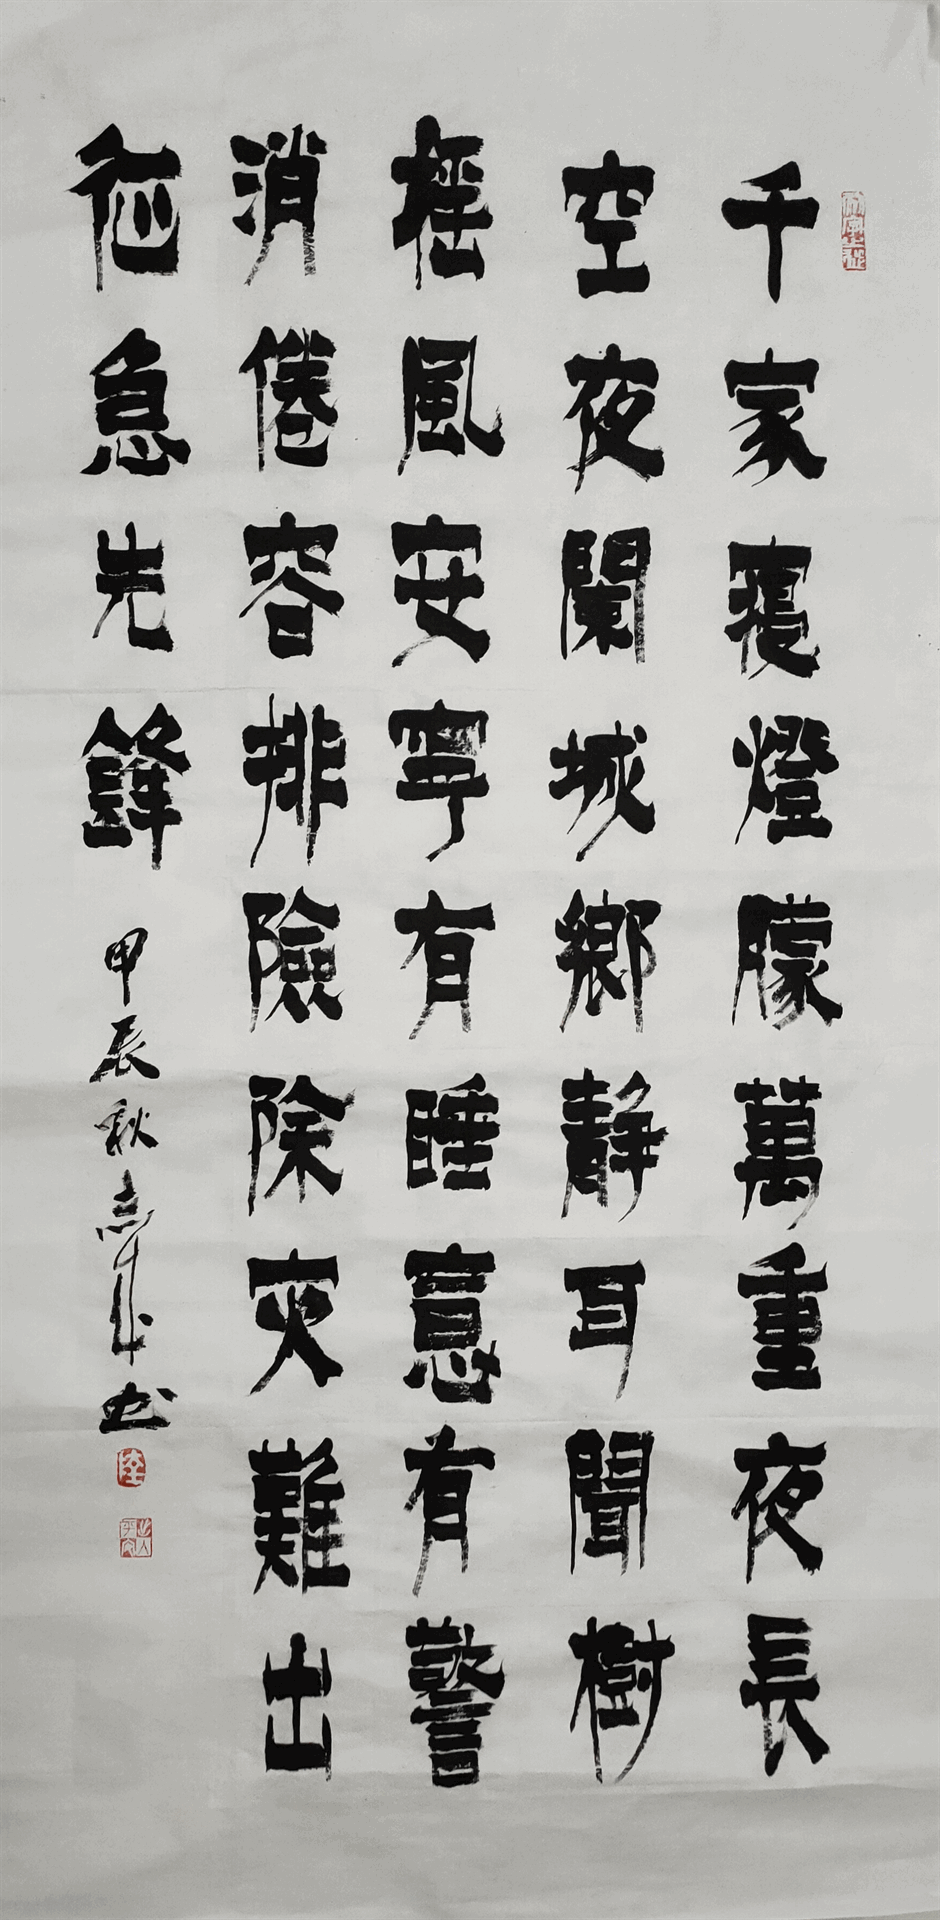 千家寢燈朦萬重夜長
空夜闌城鄉靜耳聞樹
摇風安寧有睡意有警
消倦容排險除灾難出
征急先鋒
甲辰秋志成书